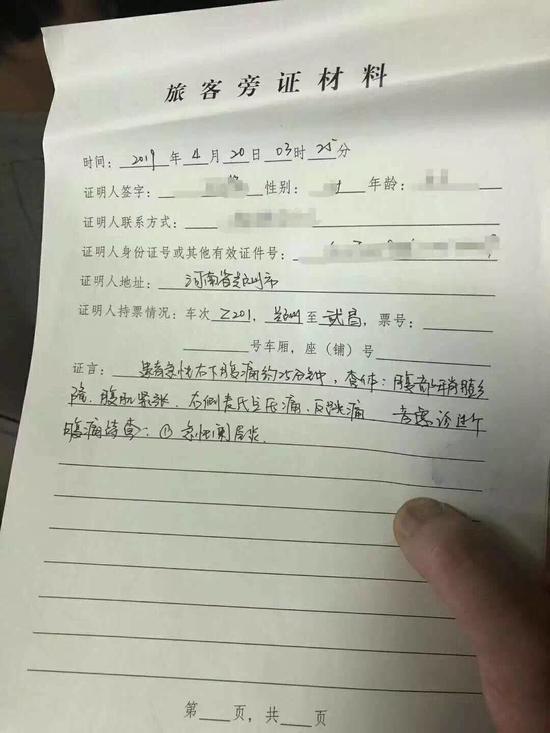 旅客旁证材料
时间: 2019 年 4 月 20 日 03 时 25 分
证明人签字: 性别: 年龄:
证明人联系方式:
证明人身份证号或其他有效证件号:
证明人地址: 河南省郑州市
证明人持票情况: 车次 Z201, 郑州 至 武昌, 票号:
号车厢, 座(铺)号
证言: 患者急性右下腹痛约25分钟, 查体: 腹部
隆、腹肌紧张、右侧麦氏点压痛、反跳痛 考虑诊
腹痛待查: ① 急性阑尾炎.
第 页, 共 页